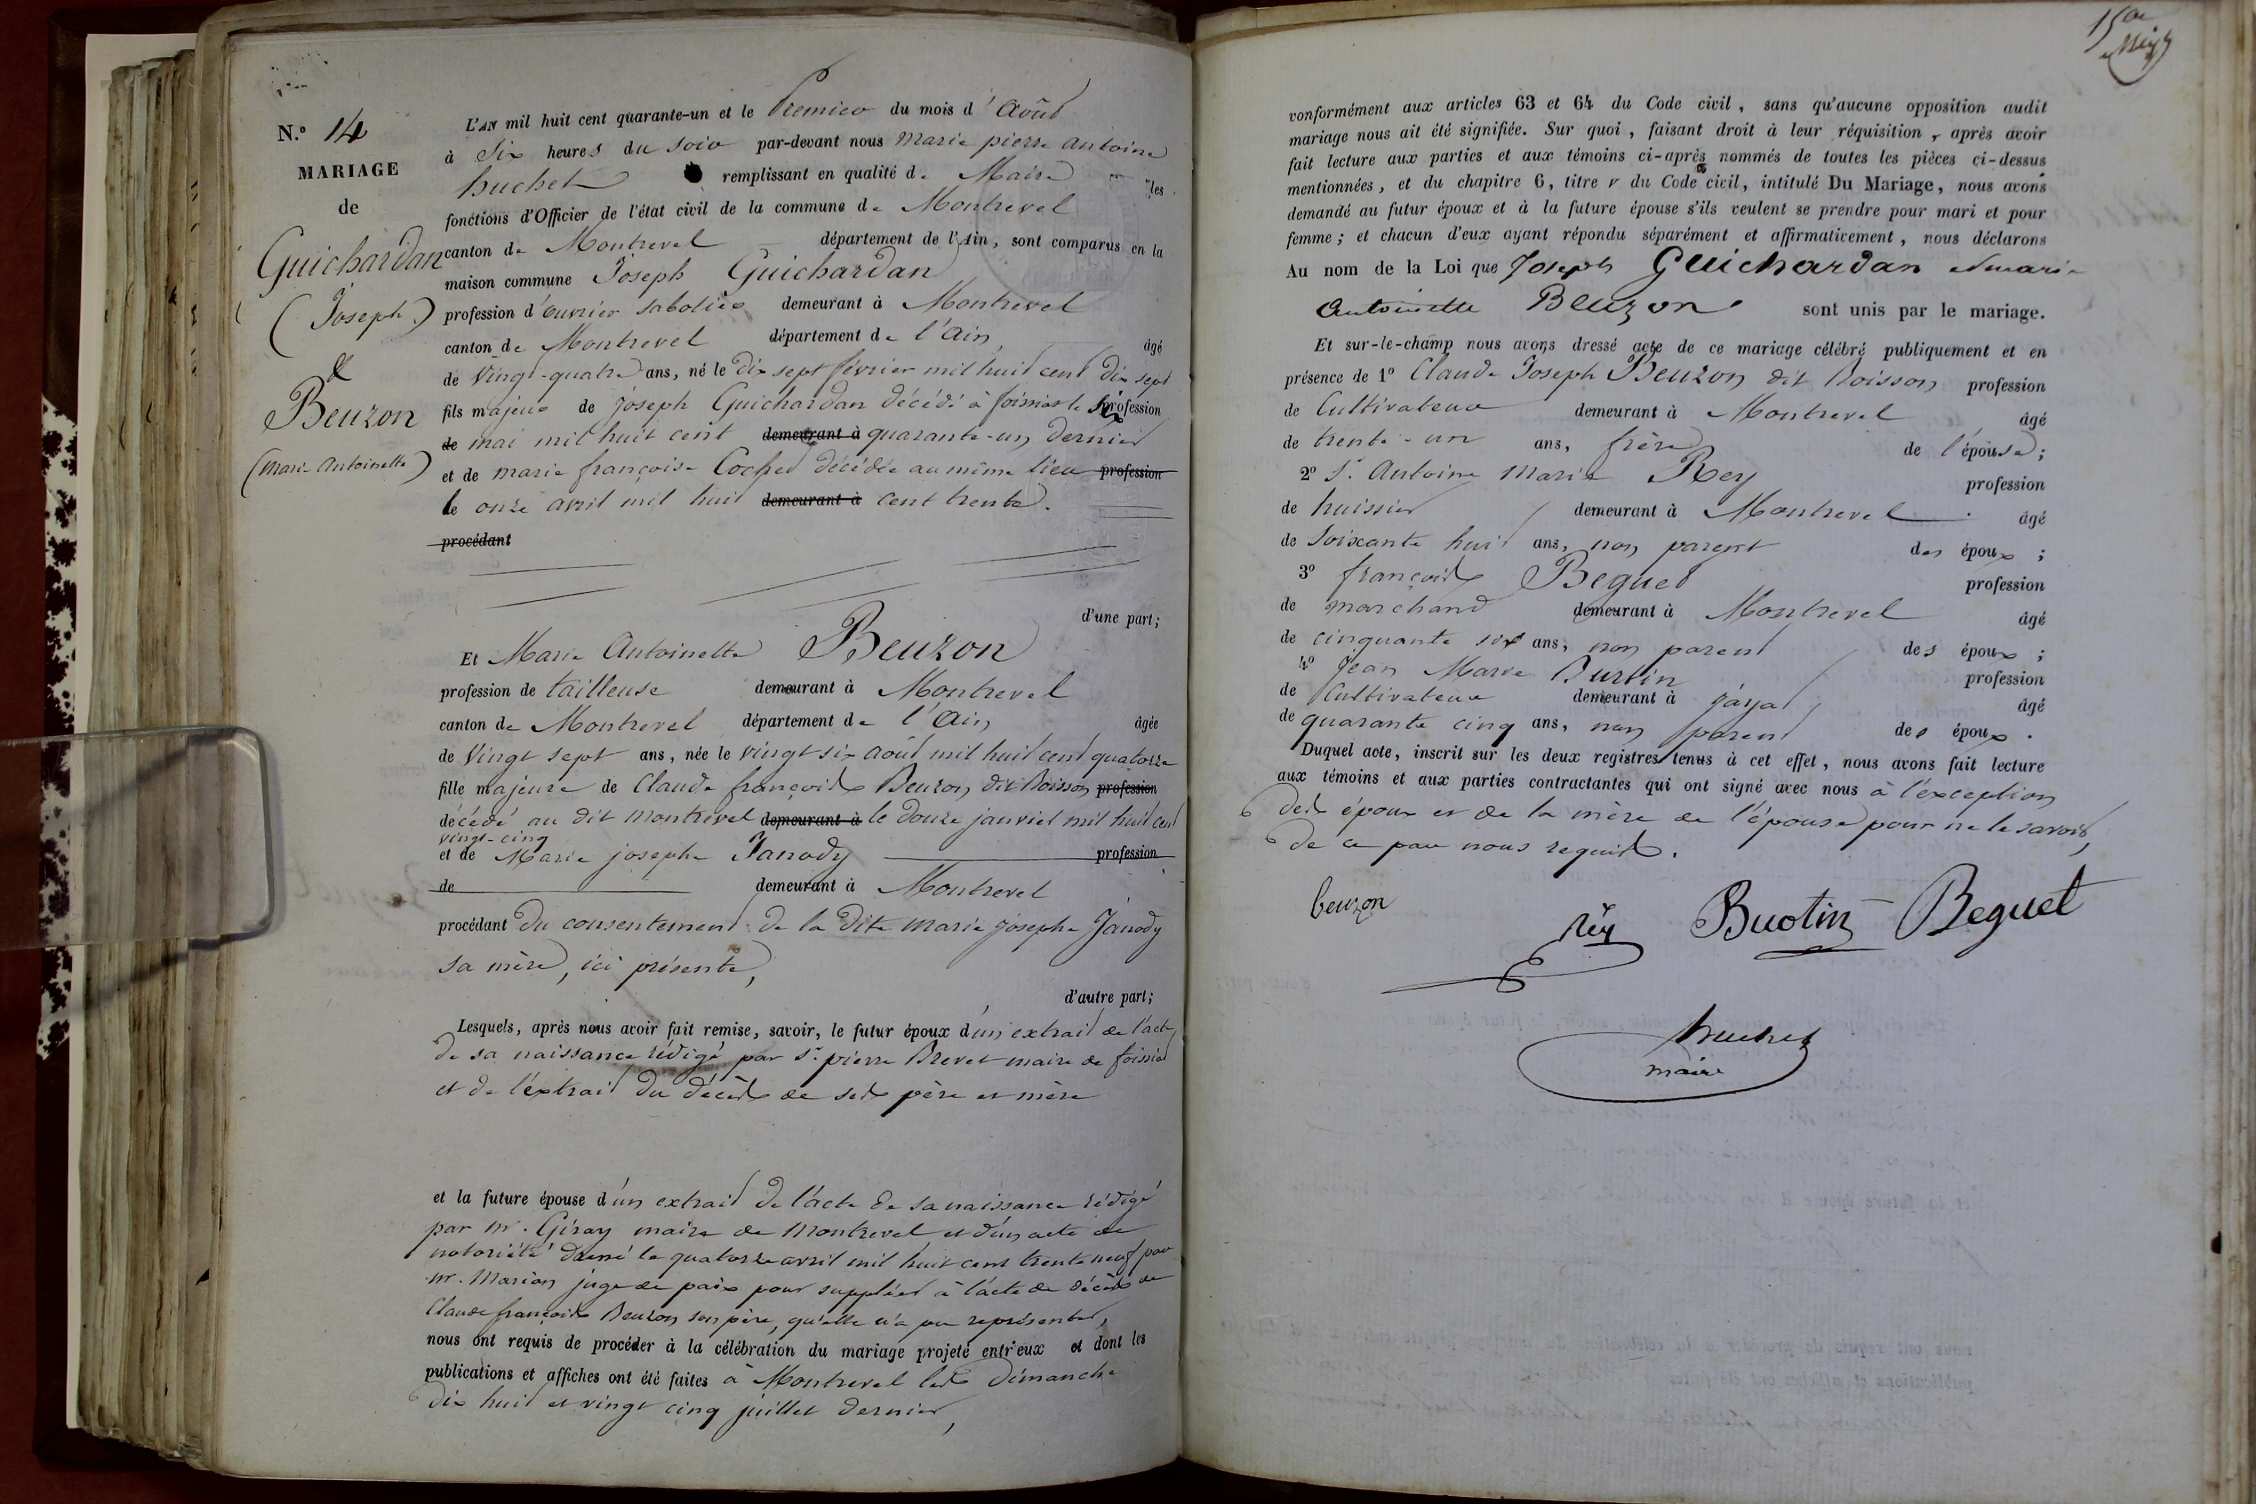 N.o 14
MARIAGE
de
Guichardan
(Joseph)
&
Beuzon
(Marie Antoinette)
L'AN mil huit cent quarante-un et le Premier du mois d'Août
à Six heures du soir par-devant nous Marie pierre antoine
huchet remplissant en qualité de Maire les
fonctions d'Officier de l'état civil de la commune de Montrevel
canton de Montrevel département de l'Ain, sont comparus en la
maison commune Joseph Guichardan
profession d'ouvrier sabotier demeurant à Montrevel
canton de Montrevel département de l'Ain, âgé
de Vingt-quatre ans, né le Dix sept février mil huit cent Dix sept
fils majeur de Joseph Guichardan décédé à foissiat le Six profession
de mai mil huit cent demeurant à quarante-un dernier
et de marie françoise Cochet décédée au même lieu profession
le onze avril mil huit demeurant à cent trente.
procédant
d'une part;
Et Marie Antoinette Beuzon
profession de tailleuse demeurant à Montrevel
canton de Montrevel département de l'Ain âgée
de Vingt sept ans, née le vingt six août mil huit cent quatorze
fille majeure de Claude françois Beuzon dit Boisson profession
décédé au dit Montrevel demeurant à le douze janvier mil huit cent
vingt-cinq
et de Marie josephe Janody profession
de demeurant à Montrevel
procédant du consentement de la dite marie josephe Janody
sa mère, ici présente,
d'autre part;
Lesquels, après nous avoir fait remise, savoir, le futur époux d'un extrait de l'acte
de sa naissance rédigé par Sr. pierre Brevet maire de foissiat
et de l'extrait du décès de ses père et mère
et la future épouse d'un extrait de l'acte de sa naissance rédigé
par mr. Giray maire de Montrevel et d'un acte de
notoriété donné le quatorze avril mil huit cent trente neuf par
mr. Marion juge de paix pour suppléer à l'acte de décès de
Claude françois Beuzon son père, qu'elle n'a pu représenter,
nous ont requis de procéder à la célébration du mariage projeté entr'eux et dont les
publications et affiches ont été faites à Montrevel les Dimanche
dix huit et vingt cinq juillet dernier,
15me
Rey
conformément aux articles 63 et 64 du Code civil, sans qu'aucune opposition audit
mariage nous ait été signifiée. Sur quoi, faisant droit à leur réquisition, après avoir
fait lecture aux parties et aux témoins ci-après nommés de toutes les pièces ci-dessus
mentionnées, et du chapitre 6, titre v du Code civil, intitulé Du Mariage, nous avons
demandé au futur époux et à la future épouse s'ils veulent se prendre pour mari et pour
femme; et chacun d'eux ayant répondu séparément et affirmativement, nous déclarons
Au nom de la Loi que Joseph Guichardan et marie
Antoinette Beuzon sont unis par le mariage.
Et sur-le-champ nous avons dressé acte de ce mariage célébré publiquement et en
présence de 1o Claude Joseph Beuzon dit Boisson profession
de Cultivateur demeurant à Montrevel âgé
de trente-un ans, frère de l'épouse;
2o Sr. Antoine Marie Rey profession
de huissier demeurant à Montrevel âgé
de Soixante huit ans, non parent des époux;
3o françois Beguet profession
de marchand demeurant à Montrevel âgé
de cinquante six ans, non parent des époux;
4o Jean Marie Burtin profession
de Cultivateur demeurant à jayat âgé
de quarante cinq ans, non parent des époux.
Duquel acte, inscrit sur les deux registres tenus à cet effet, nous avons fait lecture
aux témoins et aux parties contractantes qui ont signé avec nous à l'exception
des époux et de la mère de l'épouse pour ne le savoir,
de ce par nous requis.
beuzon
Rey Buotin Beguet
huchet
maire